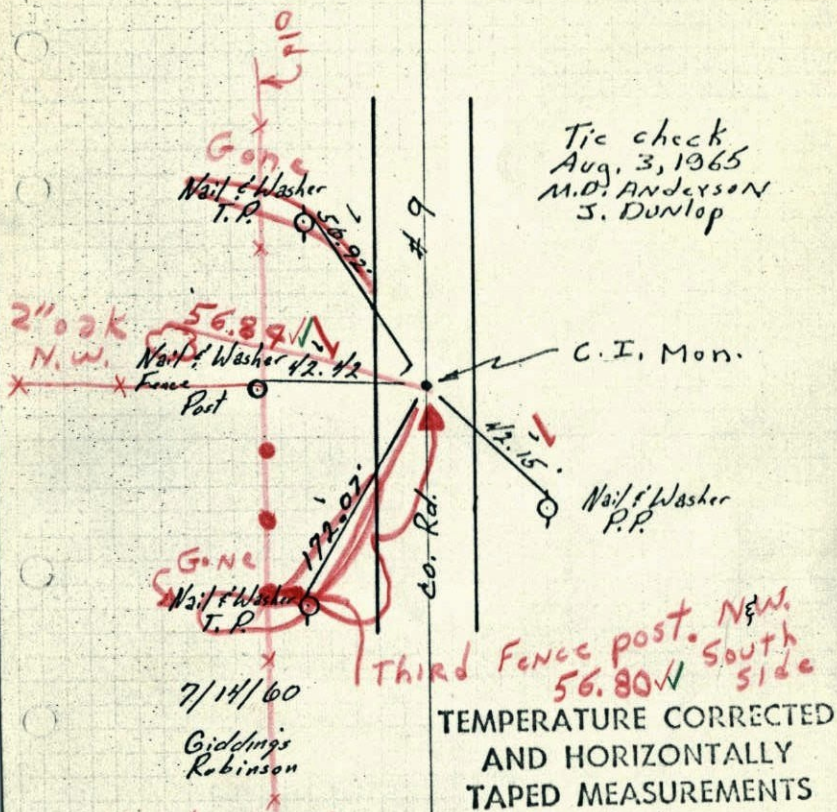 old
Gone
Nail & Washer
T.P.
56.92'
# 9
Tie check
Aug. 3, 1965
M.D. Anderson
J. Dunlop
2" oak
N.W.
56.84
Nail & Washer
Fence
Post
42.42
C.I. Mon.
42.15'
Nail & Washer
P.P.
172.07'
Co. Rd.
Gone
Nail & Washer
T.P.
Third Fence post. N&W.
South
side
56.80
7/14/60
Giddings
Robinson
TEMPERATURE CORRECTED
AND HORIZONTALLY
TAPED MEASUREMENTS